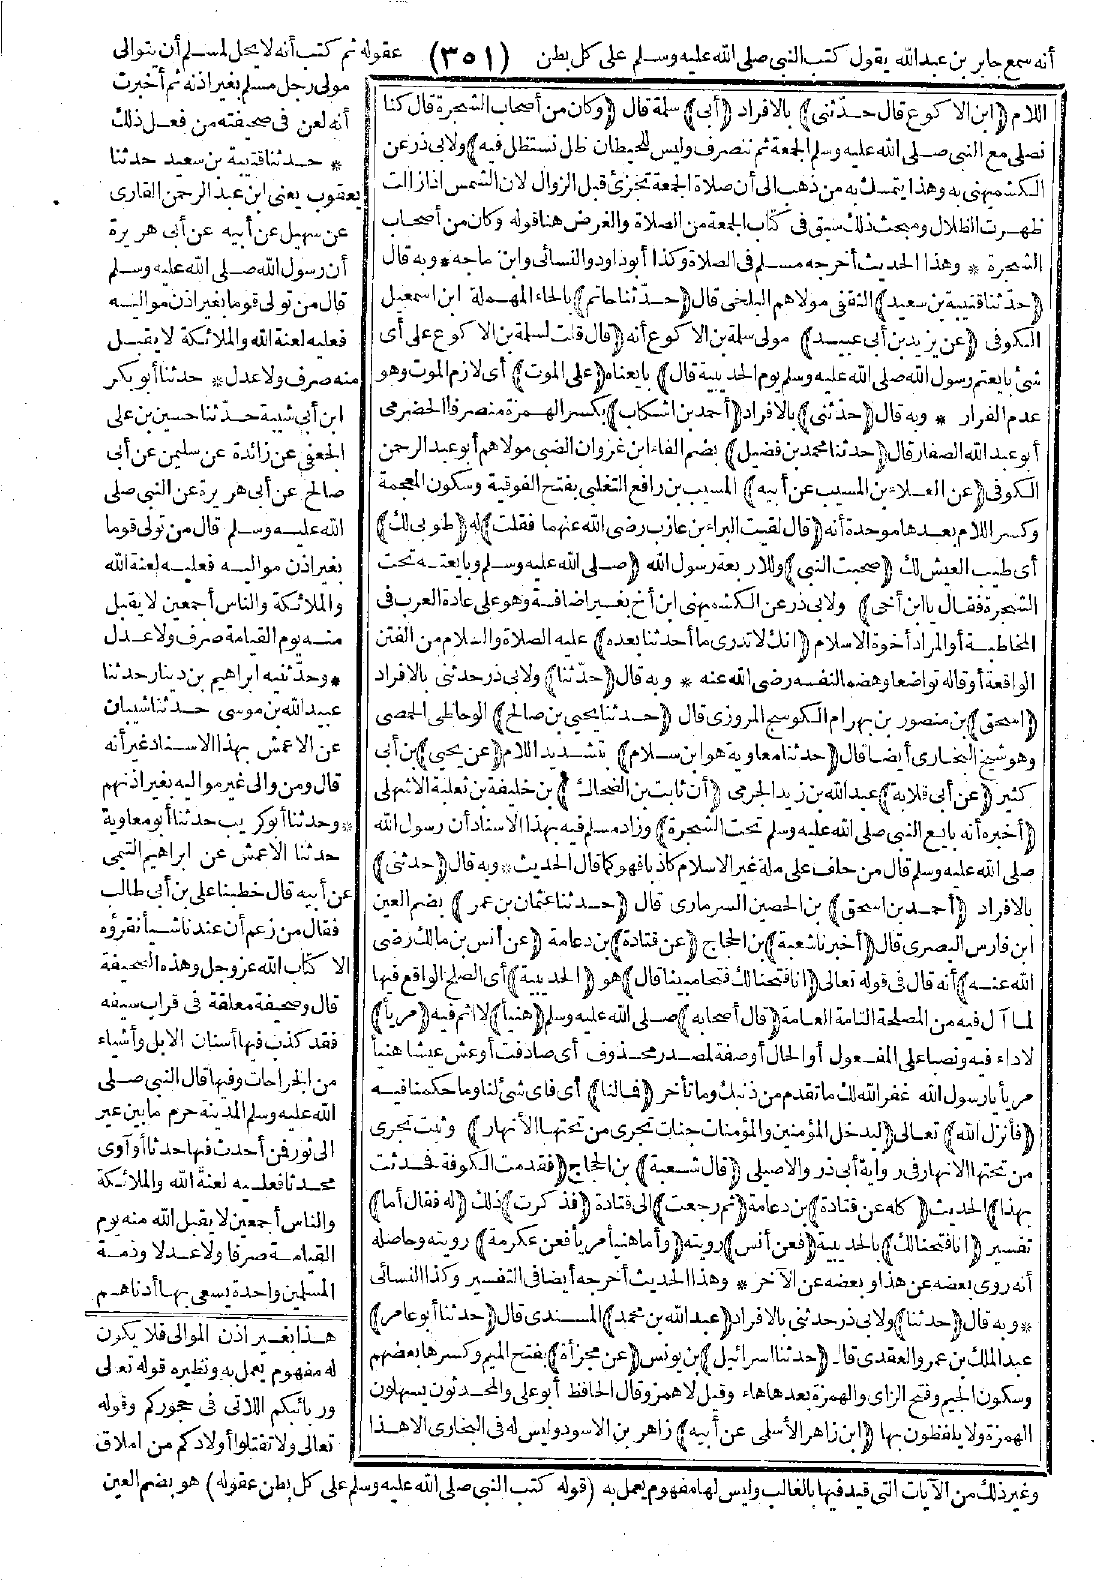 أنه سمع جابر بن عبد الله يقول كتب النبي صلى الله عليه وسلم على كل بطن (٣٥١) عقوله ثم كتب أنه لا يحل لمسلم أن يتوالى
اللام (ابن الاكوع قال حدثني) بالافراد (أبي) سلمة قال (وكان من أصحاب الشجرة قال كنا
نصلي مع النبي صلى الله عليه وسلم الجمعة ثم ننصرف وليس للحيطان ظل نستظل فيه) ولابي ذر عن
الكشميهني به وهذا يتمسك به من ذهب الى أن صلاة الجمعة تجزئ قبل الزوال لان الشمس اذا زالت
ظهرت الظلال ومبحث ذلك سبق في كتاب الجمعة من الصلاة والغرض هنا قوله وكان من أصحاب
الشجرة * وهذا الحديث أخرجه مسلم في الصلاة وكذا أبو داود والنسائي وابن ماجه * وبه قال
(حدثنا قتيبة بن سعيد) الثقفي مولاهم البلخي قال (حدثنا حاتم) بالحاء المهملة ابن اسمعيل
الكوفي (عن يزيد بن أبي عبيد) مولى سلمة بن الاكوع أنه (قال قلت لسلمة بن الاكوع على أي
شئ بايعتم رسول الله صلى الله عليه وسلم يوم الحديبية قال) بايعناه (على الموت) أي لازم الموت وهو
عدم الفرار * وبه قال (حدثني) بالافراد (أحمد بن اشكاب) بكسر الهمزة منصرفا الحضرمي
أبو عبد الله الصفار قال (حدثنا محمد بن فضيل) بضم الفاء ابن غزوان الضبي مولاهم أبو عبد الرحمن
الكوفي (عن العلاء بن المسيب عن أبيه) المسيب بن رافع التغلبي بفتح الفوقية وسكون المعجمة
وكسر اللام بعدها موحدة أنه (قال لقيت البراء بن عازب رضي الله عنهما فقلت) له (طوبى لك)
أي طيب العيش لك (صحبت النبي) وللاربعة رسول الله (صلى الله عليه وسلم وبايعته تحت
الشجرة فقال يا ابن أخي) ولابي ذر عن الكشميهني ابن أخ بغير اضافة وهو على عادة العرب في
المخاطبة أو المراد أخوة الاسلام (انك لا تدري ما أحدثنا بعده) عليه الصلاة والسلام من الفتن
الواقعة أو قاله تواضعا وهضما لنفسه رضي الله عنه * وبه قال (حدثنا) ولابي ذر حدثني بالافراد
(اسحق) بن منصور بن بهرام الكوسج المروزي قال (حدثنا يحيى بن صالح) الوحاظي الحمصي
وهو شيخ البخاري أيضا قال (حدثنا معاوية هو ابن سلام) بتشديد اللام (عن يحيى) بن أبي
كثير (عن أبي قلابة) عبد الله بن زيد الجرمي (أن ثابت بن الضحاك) بن خليفة بن ثعلبة الاشهلي
(أخبره أنه بايع النبي صلى الله عليه وسلم تحت الشجرة) وزاد مسلم فيه بهذا الاسناد أن رسول الله
صلى الله عليه وسلم قال من حلف على ملة غير الاسلام كاذبا فهو كما قال الحديث * وبه قال (حدثني)
بالافراد (أحمد بن اسحق) بن الحصين السرماري قال (حدثنا عثمان بن عمر) بضم العين
ابن فارس البصري قال (أخبرنا شعبة) بن الحجاج (عن قتادة) بن دعامة (عن أنس بن مالك رضي
الله عنه) أنه قال في قوله تعالى (انا فتحنا لك فتحا مبينا قال) هو (الحديبية) أي الصلح الواقع فيها
لما آل فيه من المصلحة التامة العامة (قال أصحابه) صلى الله عليه وسلم (هنيأ) لا اثم فيه (مريأ)
لاداء فيه ونصبا على المفعول أو الحال أو صفة لمصدر محذوف أي صادفت أو عش عيشا هنيأ
مريأ يا رسول الله غفر الله لك ما تقدم من ذنبك وما تأخر (فما لنا) أي فأي شئ لنا وما حكمنا فيه
(فأنزل الله) تعالى (ليدخل المؤمنين والمؤمنات جنات تجري من تحتها الأنهار) وثبت تجري
من تحتها الانهار في رواية أبي ذر والاصيلي (قال شعبة) بن الحجاج (فقدمت الكوفة فحدثت
بهذا) الحديث (كله عن قتادة) بن دعامة (ثم رجعت) الى قتادة (فذكرت) ذلك (له فقال أما)
تفسير (انا فتحنا لك) بالحديبية (فعن أنس) رويته (وأما هنيأ مريأ فعن عكرمة) رويته وحاصله
أنه روى بعضه عن هذا وبعضه عن الآخر * وهذا الحديث أخرجه أيضا في التفسير وكذا النسائي
* وبه قال (حدثنا) ولابي ذر حدثني بالافراد (عبد الله بن محمد) المسندي قال (حدثنا أبو عامر)
عبد الملك بن عمرو العقدي قال (حدثنا اسرائيل) بن يونس (عن مجزأة) بفتح الميم وكسرها بعضهم
وسكون الجيم وفتح الزاي والهمزة بعدها هاء وقيل لا همز وقال الحافظ أبو علي والمحدثون يسهلون
الهمزة ولا يلفظون بها (ابن زاهر الأسلمي عن أبيه) زاهر بن الاسود وليس له في البخاري الا هذا
مولى رجل مسلم بغير اذنه ثم أخبرت
أنه لعن في صحيفته من فعل ذلك
* حدثنا قتيبة بن سعيد حدثنا
يعقوب يعني ابن عبد الرحمن القاري
عن سهيل عن أبيه عن أبي هريرة
أن رسول الله صلى الله عليه وسلم
قال من تولى قوما بغير اذن مواليه
فعليه لعنة الله والملائكة لا يقبل
منه صرف ولا عدل * حدثنا أبو بكر
ابن أبي شيبة حدثنا حسين بن علي
الجعفي عن زائدة عن سليمن عن أبي
صالح عن أبي هريرة عن النبي صلى
الله عليه وسلم قال من تولى قوما
بغير اذن مواليه فعليه لعنة الله
والملائكة والناس أجمعين لا يقبل
منه يوم القيامة صرف ولا عدل
* وحدثنيه ابراهيم بن دينار حدثنا
عبيد الله بن موسى حدثنا شيبان
عن الاعمش بهذا الاسناد غير أنه
قال ومن والى غير مواليه بغير اذنهم
* وحدثنا أبو كريب حدثنا أبو معاوية
حدثنا الاعمش عن ابراهيم التيمي
عن أبيه قال خطبنا علي بن أبي طالب
فقال من زعم أن عندنا شيأ نقرؤه
الا كتاب الله عز وجل وهذه الصحيفة
قال وصحيفة معلقة في قراب سيفه
فقد كذب فيها أسنان الابل وأشياء
من الجراحات وفيها قال النبي صلى
الله عليه وسلم المدينة حرم ما بين عير
الى ثور فمن أحدث فيها حدثا أو آوى
محدثا فعليه لعنة الله والملائكة
والناس أجمعين لا يقبل الله منه يوم
القيامة صرفا ولا عدلا وذمة
المسلمين واحدة يسعى بها أدناهم
هذا بغير اذن الموالي فلا يكون
له مفهوم يعمل به ونظيره قوله تعالى
وربائبكم اللاتي في حجوركم وقوله
تعالى ولا تقتلوا أولادكم من املاق
وغير ذلك من الآيات التي قيد فيها بالغالب وليس لها مفهوم يعمل به (قوله كتب النبي صلى الله عليه وسلم على كل بطن عقوله) هو بضم العين